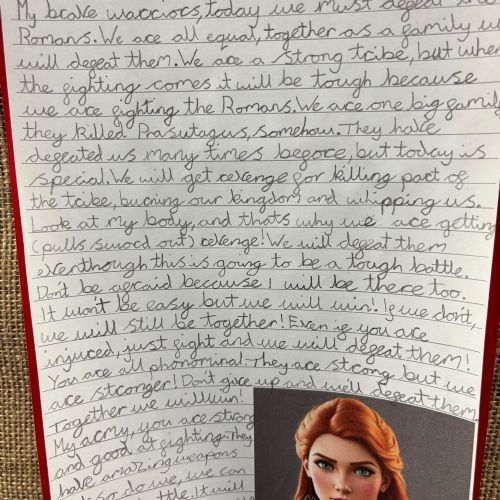 My brave warriors, today we must defeat the
Romans. We are all equal, together as a family we
will defeat them. We are a strong tribe, but when
the fighting comes it will be tough because
we are fighting the Romans. We are one big family
they killed Prasutagus, somehow. They have
defeated us many times before, but today is
special. We will get revenge for killing part of
the tribe, burring our kingdom and whipping us.
Look at my body, and thats why we are getting
(pulls sword out) revenge! We will defeat them
eventhough this is going to be a tough battle.
Don't be afraid because I will be there too.
It won't be easy but we will win! If we don't,
we will still be together! Even if you are
injured, just fight and we will defeat them!
You are all phonominal. They are strong but we
are stronger! Don't give up and we'll defeat them
Together we will win!
My army, you are strong
and good at fighting. They
have amazing weapons
so do we, we can
It will